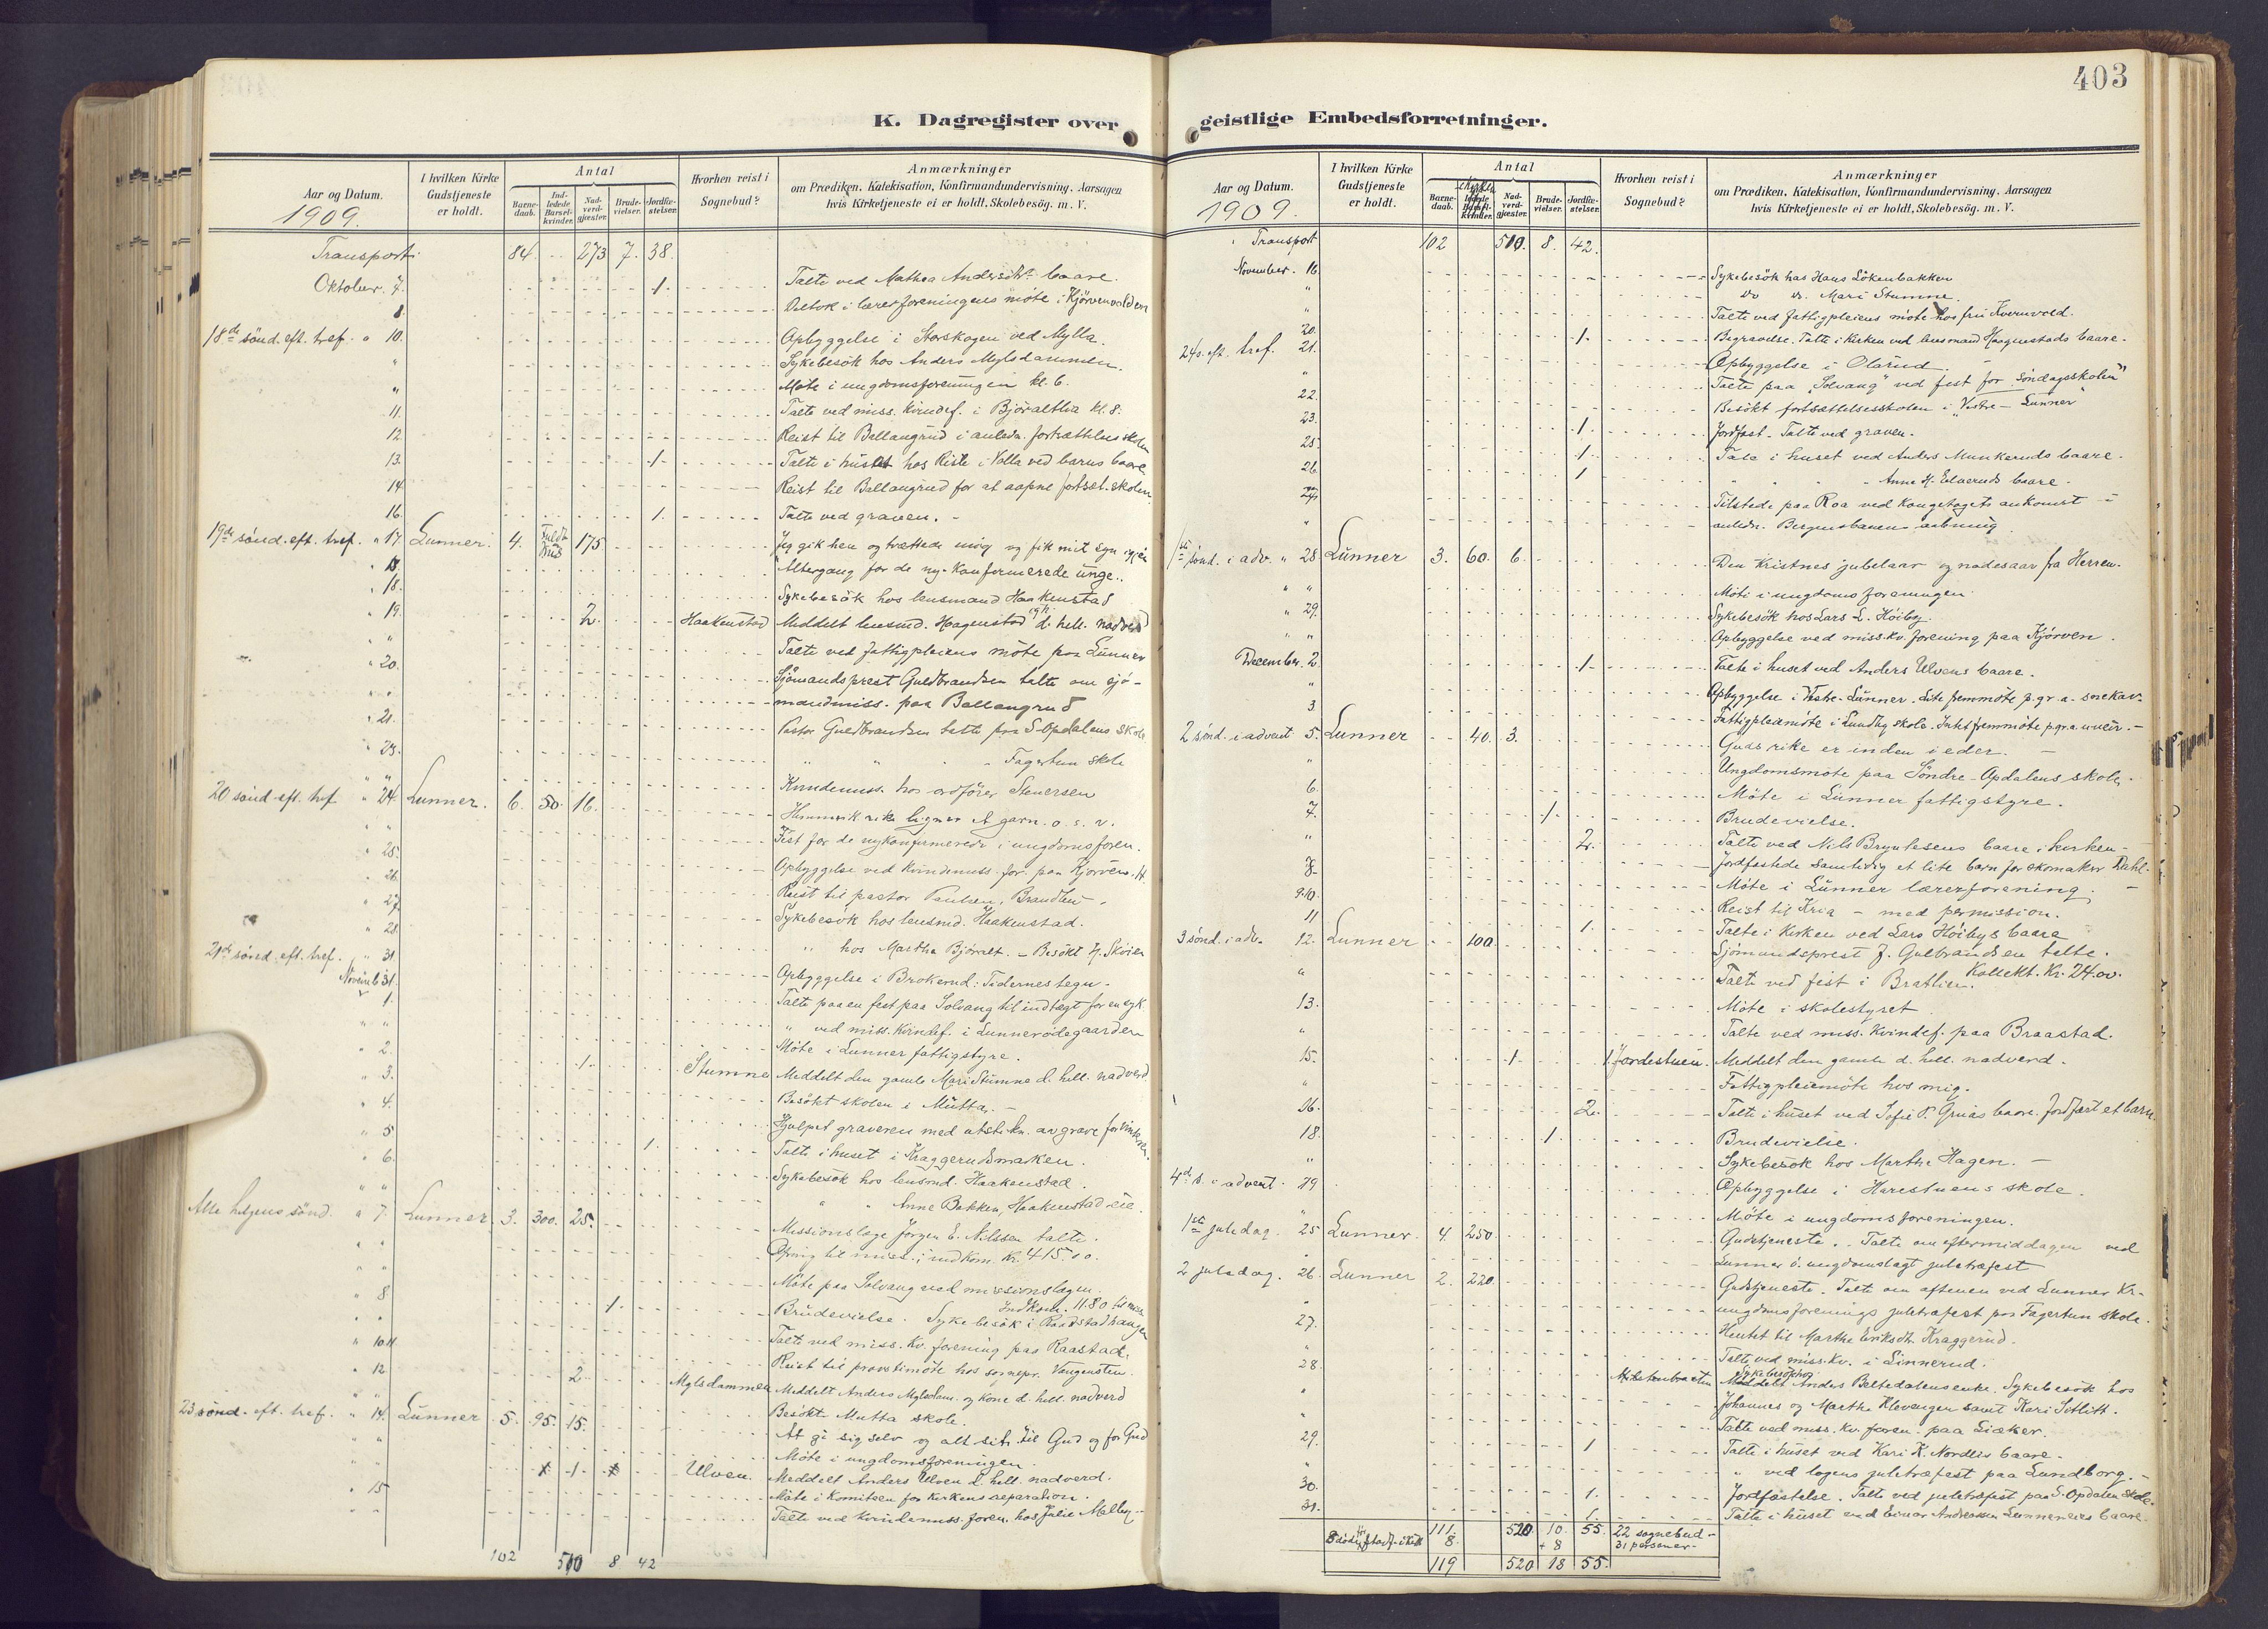 403
K. Dagregister over geistlige Embedsforretninger.
Aar og Datum.
1909.
I hvilken Kirke Gudstjeneste er holdt.
Antal
Barne-daab.
Ind-ledede Barsel-kvinder.
Nad-verd-gjæster.
Brude-vielser.
Jordfæ-stelser.
Hvorhen reist i Sognebud?
Anmærkninger
om Prædiken, Katekisation, Konfirmandundervisning, Aarsagen
hvis Kirketjeneste ei er holdt, Skolebesög. m. V.
Transport. 84. 273 7. 38.
Oktober. 7. 1. Talte ved Mathea baare.
8 Deltok i lærerforeningens möte i Kjörvenvolden
18de sönd. eft. tref. " 10. Opbyggelse i Storskogen ved Mylla.
" Sykebesök hos Anders Myldammen.
" Möte i ungdomsforeningen kl. 6.
11. Talte ved miss. kvindef. i Björaltlia kl. 8.
12 Reist til Ballangrud i anledn. fortsættelsesskolen
13. 1. Talte i huset hos Riste i Volla ved barns baare
14 Reist til Ballangrud for at aapne fortsæt. skolen
16. 1. Talte ved graven. -
19de sönd. eft. tref. " 17. Lunner. 4. Fuldt hus 175 Jeg gik hen og tvættede mig og fik mit syn igjen
Altergang for de ny-konfirmerede unge..
" 18. Sykebesök hos lensmand Haakenstad
" 19. 2. Haakenstad Meddelt lensmd. Haagenstad d. hell. nadverd
" " Talte ved fattigpleiens möte paa Lunner
" 20. Sjömandsprest Guldbrandsen talte om sjö-
mandsmiss. paa Ballangrud
" 21. Pastor Guldbrandsen talte paa S-Opdalens skole
" 23. " " - Fagertun skole
" " Kvindemiss. hos ordförer Stenersen
20 sönd. eft. tref. " 24. Lunner. 6. 50. 16. Himmerik rike ligner et garn. o. s. v.
" " Fest for de nykonfirmerede i ungdomsforen.
" 25. Opbyggelse ved kvindemiss. for. paa Kjörven.
" 26. Reist til pastor Paulsen, Brandbu.
" 27. Sykebesök hos lensmd. Haakenstad.
" 28. " hos Marthe Björalt. - Besökt
21de sönd. eft. tref. " 31. Opbyggelse i Brokerud: Tidernes tegn.
Novemb. 1. Talte paa en fest paa Solvang til indtægt for en syk
" " " ved miss. kvindef. i Lunnerödegaarden
" 2. Möte i Lunner fattigstyre.
" 3. 1. Stumne Meddelt den gamle Mari Stumne d. hell. nadverd
" 4. Besökt skolen i Mutta. -
" 5 Hjulpet graveren med utstikn. av grave for vinteren.
" 6. 1. Talte i huset i Kraggerudsmarken.
" " Sykebesök hos lensmd. Haakenstad.
" " Anne Bakken, Haakenstadeie.
Alle helgens sönd. " 7. Lunner. 3. 300. 25. Missionslæge Jörgen E. Nilssen talte.
Ofring til miss.: indkom. Kr. 415.00.
" " Möte paa Solvang med missionslægen.
Indkom. 11.80 til miss
" 8 1. Brudevielse. Sykebesök i
" Talte ved miss. kv. forening paa Raastad.
" 10.11 Reist til provstimöte hos sognepr. Vangensten.
" 12 2. Mylsdammen Meddelt Anders Myldam. og kone d. hell. nadverd
" " Besökt Mutta skole.
23 sönd. eft. tref. " 14. Lunner 5. 95. 15. At gi sig selv og alt sit til Gud og for Gud
" " Möte i ungdomsforeningen.
1. Ulven. Meddelt Anders Ulven d. hell. nadverd.
" 15 Möte i komiteen for kirkens reparation.
" " Talte ved kvindemiss. foren. hos Julie
102 510 8 42
Aar og Datum.
1909.
I hvilken Kirke Gudstjeneste er holdt.
Antal
Barne-daab.
Nad-verd-gjæster.
Brude-vielser.
Jordfæ-stelser.
Hvorhen reist i Sognebud?
Anmærkninger
om Prædiken, Katekisation, Konfirmandundervisning, Aarsagen
hvis Kirketjeneste ei er holdt, Skolebesög. m. V.
Transport 102 510. 8. 42.
November. 16. Sykebesök hos Hans Lökenbakken
" do do. Mari Stumne.
" Talte ved fattigpleiens möte hos Kvernvold.
20. 1. Begravelse. Talte i kirken ved lensmand Haagenstads baare.
24 s. eft. tref. 21. Opbyggelse i Olarud.
" Talte paa "Solvang" ved fest for Söndagsskolen
22. Besökt fortsættelsesskolen i Vestre-Lunner
23. 1. Jordfæst. Talte ved graven.
25. 1. Tale i huset ved Anders Munkeruds baare.
26. 1 " - Anne H. baare.
27. Tilstede paa Roa ved kongetogets ankomst i
" anledn. Bergensbanen aabning.
1ste sönd. i adv. " 28. Lunner 3. 60. 6. Den kristnes jubelaar og nadesaar fra Herren.
" " Möte i ungdomsforeningen
" 29. Sykebesök hos Lars L. Höiby.
" " Opbyggelse ved miss. kv. forening paa Kjörven.
December. 2. 1. Talte i huset ved Anders Ulvens baare.
" Opbyggelse i Vestre-Lunner. Lite fremmöte p. gr. a. snekav.
3 Fattigpleiemöte i Lundby skole. Intet fremmöte p. gr. a. uveir. -
2 sönd. i advent 5. Lunner 40. 3. Guds rike er inden i eder. -
" Ungdomsmöte paa Söndre-Opdalens skole.
6. Möte i Lunner fattigstyre.
7. 1. Brudevielse.
" 2. Talte ved Nils Brynlesens baare i kirken -
Jordfæstede samtidig et lite barn for skomaker Dahl.
8. Möte i Lunner lærerforening.
9.10. Reist til Kria - med permission.
11 1. Talte i Kirken ved Lars Höibys baare
3 sönd. i adv. 12. Lunner 100. Sjömandsprest J. Gulbrandsen talte.
Kollekt. Kr. 24.00.
" Talte ved fest i Bratlien.
13. Möte i skolestyret
" Talte ved miss. Kvindef. paa Braastad.
15. 1. Meddelt den gamle d. hell. nadverd.
" Fattigpleiemöte hos mig.
16. 2. Talte i huset ved Sofie P. Gruas baare. Jordfæst et barn.
18. 1. Brudevielse.
" Sykebesök hos Marthe Hagen. -
4de s. i advent. 19 Opbyggelse i Harestuens skole.
" Möte i ungdomsforeningen.
1ste juledag. 25 Lunner. 4. 250. Gudstjeneste. - Talte om eftermiddagen ved
Lunner ö. ungdomslags juletræfest
2 juledag. 26. Lunner 2. 220. Gudstjeneste. Talte om aftenen ved Lunner Kr.
ungdomsforenings juletræfest paa Fagertun skole.
27. Hentet til Marthe Eriksdtr. Kraggerud.
" Talte ved miss. kv. i Linnerud.
28. Sykebesök hos Anders Beltedalens enke. Sykebesök hos
" Johannes og Marthe Klevengen samt Kari
" Talte ved miss. kv. foren. paa
29. 1 Talte i huset ved Kari K. Nordlies baare.
" " ved logens juletræfest paa Lundborg. -
30. 1. Jordfæstelse. Talte ved juletræfest paa S. Opdalen skole.
31. 1. Talte i huset ved Einar Andreassen baare.
111. 520 10. 55. 22 sognebud -
8. + 8 31 personer -
119 520 18 55.